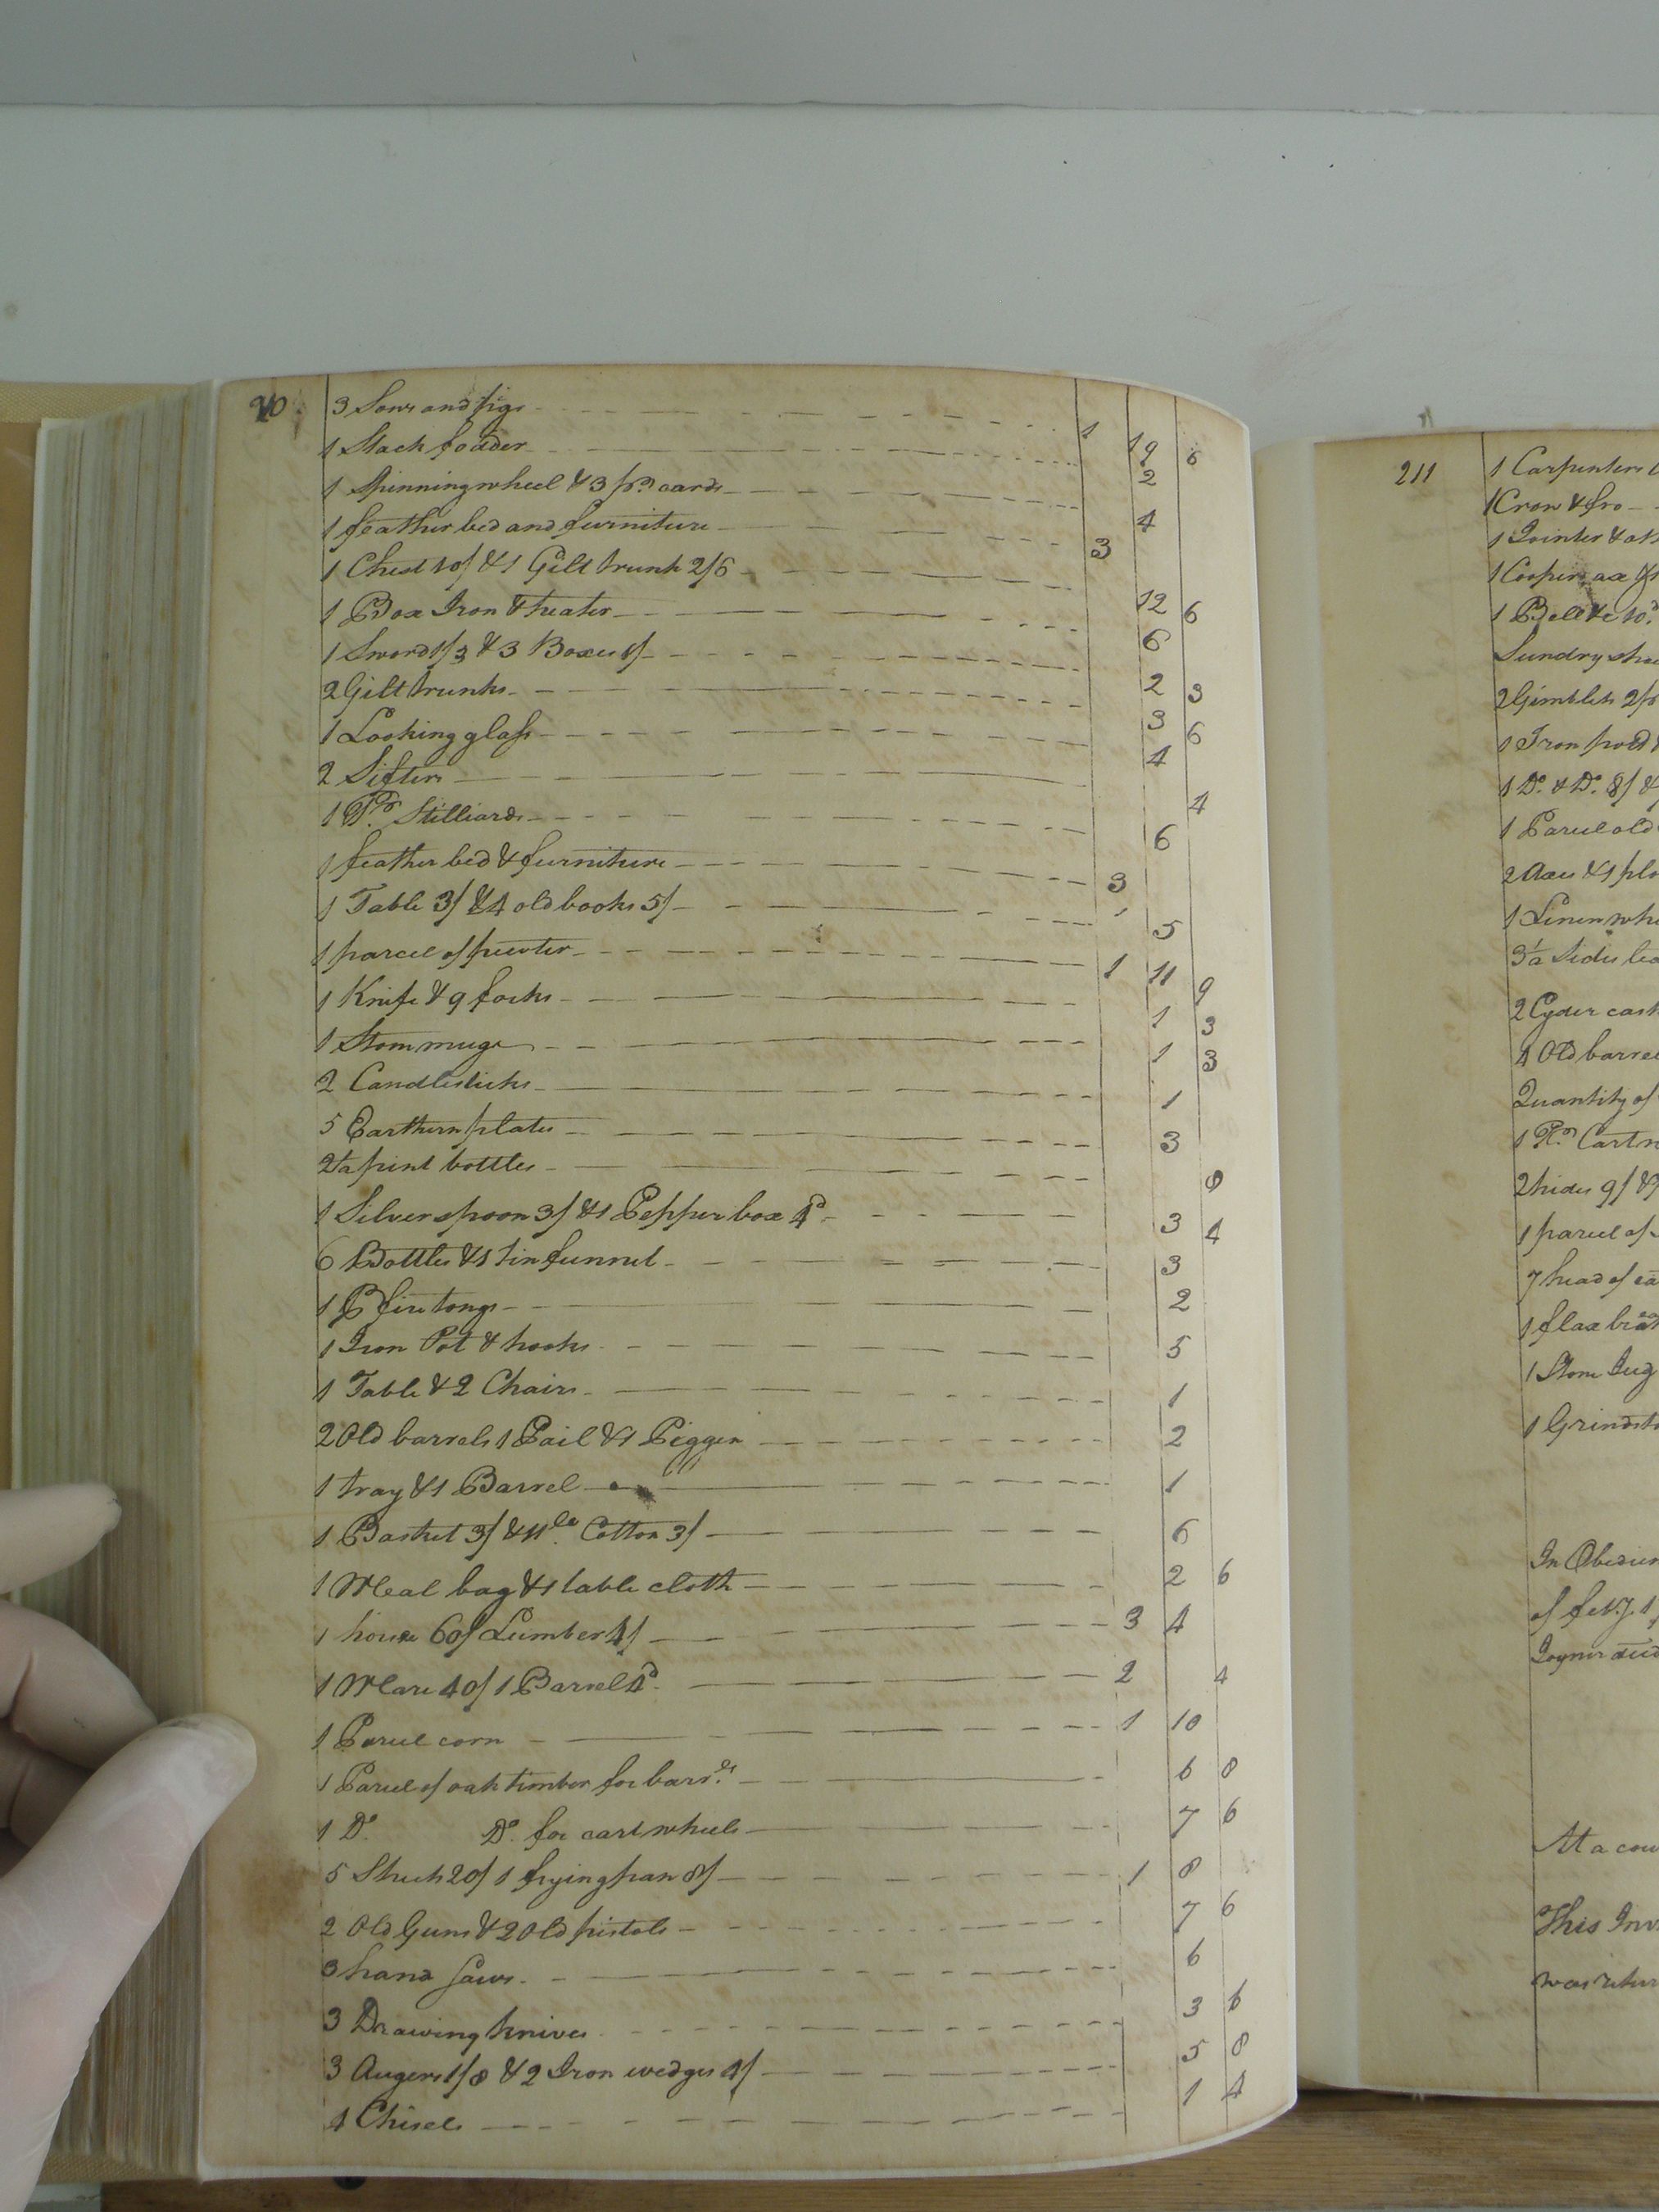 210 3 Sows and pigs 1 19 6
1 Stack fodder 2
1 Spinning wheel & 3 pr. cards 4
1 feather bed and furniture 3
1 Chest 10/ & 1 Gilt trunk 2/6 12 6
1 Box Iron & heater 6
1 Sword 1/3 & 3 Boxes 1/ 2 3
2 Gilt trunks 3 6
1 Looking glass 4
2 Sifters 4
1 Pr. Stilliards 6
1 feather bed & furniture 3
1 Table 3/ & 4 old books 5/ 5
1 parcel of pewter 1 11 9
1 Knife & 9 forks 1 3
1 Stone mugs 1 3
2 Candlesticks 1
5 Earthern plates 3
2 1/2 pint bottles 8
1 Silver spoon 3/ & 1 Pepper box 4d 3 4
6 Bottles & 1 tin funnel 3
1 P fire tongs 2
1 Iron Pot & hooks 5
1 Table & 2 Chairs 1
2 Old barrels 1 Pail & 1 Piggen 2
1 tray & 1 Barrel 1
1 Basket 3/ & 11 lb Cotton 3/ 6
1 Meal bag & 1 table cloth 2 6
1 horse 60/ Lumber 4/ 3 4
1 Mare 40/ 1 Barrel 4d. 2 4
1 Parcel corn 1 10
1 Parcel of oak timber for barr.ls 6 8
1 Do. Do. for cart wheels 7 6
5 Stocks 20/ 1 frying pan 8/ 1 8
2 Old Guns & 2 Old pistols 7 6
3 hand Saws 6
3 Drawing knives 3 6
3 Augers 1/8 & 2 Iron wedges 4/ 5 8
4 Chisels 1 4
211 1 Carpenters
1 Crow & fro
1 Jointer &
1 Coopers ax
1 Bell &c 10d
Sundry
2 Gimblets 2/
1 Iron
1 Do. & Do. 8/ &
1 Parcel old
2 Axes & 1
1 Linen
3 1/2 Sides
2 Cyder
4 Old
Quantity of
1 Pr.
2 hides 9/ &
1 parcel of
7 head of
1 flax
1 Stone Jug
1
In
of
Joyner
At a
This
was